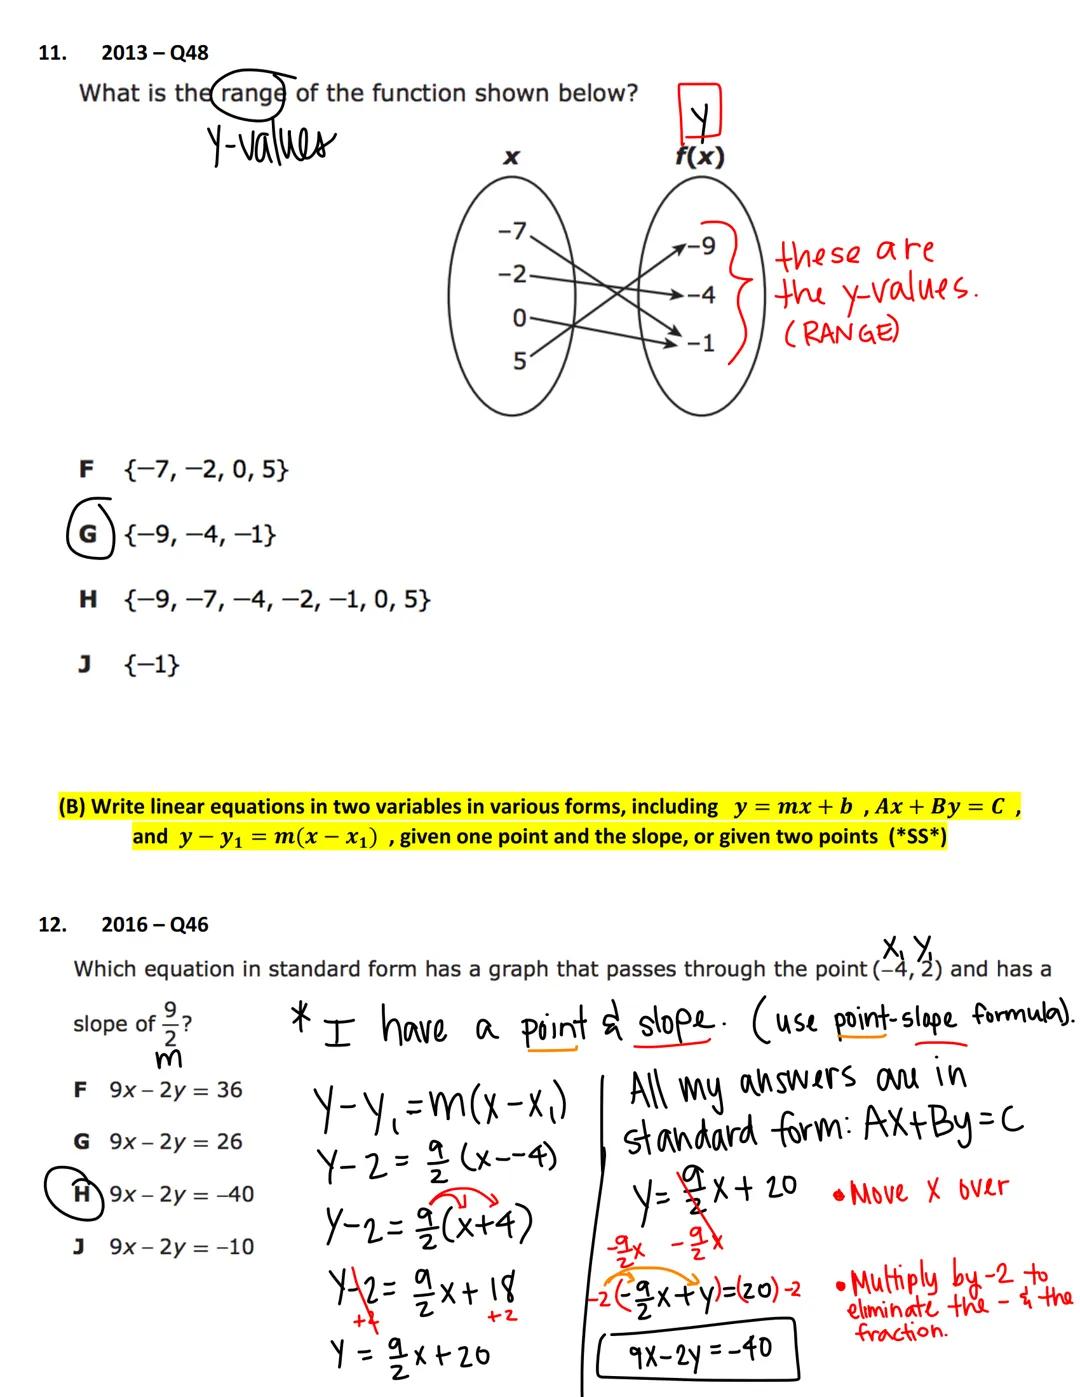 11. 2013 – Q48
What is the range of the function shown below?
y-values
y
x f(x)
−7
−2
0
5
−9
−4
−1
these are
the y-values.
(RANGE)
F {−7, −2, 0, 5}
G {−9, −4, −1}
H {−9, −7, −4, −2, −1, 0, 5}
J {−1}
(B) Write linear equations in two variables in various forms, including y = mx + b , Ax + By = C ,
and y − y₁ = m(x − x₁) , given one point and the slope, or given two points (*SS*)
12. 2016 – Q46
x₁ y₁
Which equation in standard form has a graph that passes through the point (−4, 2) and has a
slope of 9/2?
m
* I have a point & slope. (use point-slope formula).
F 9x − 2y = 36
G 9x − 2y = 26
H 9x − 2y = −40
J 9x − 2y = −10
y-y₁=m(x-x₁)
y-2= 9/2 (x--4)
y-2= 9/2 (x+4)
y-2= 9/2 x+ 18
+2 +2
y = 9/2 x+20
All my answers are in
standard form: Ax+By=C
y= 9/2 x+ 20
-9/2 x -9/2 x
-2(-9/2 x+y)=(20)-2
9x-2y=-40
• Move x over
• Multiply by -2 to
eliminate the - & the
fraction.